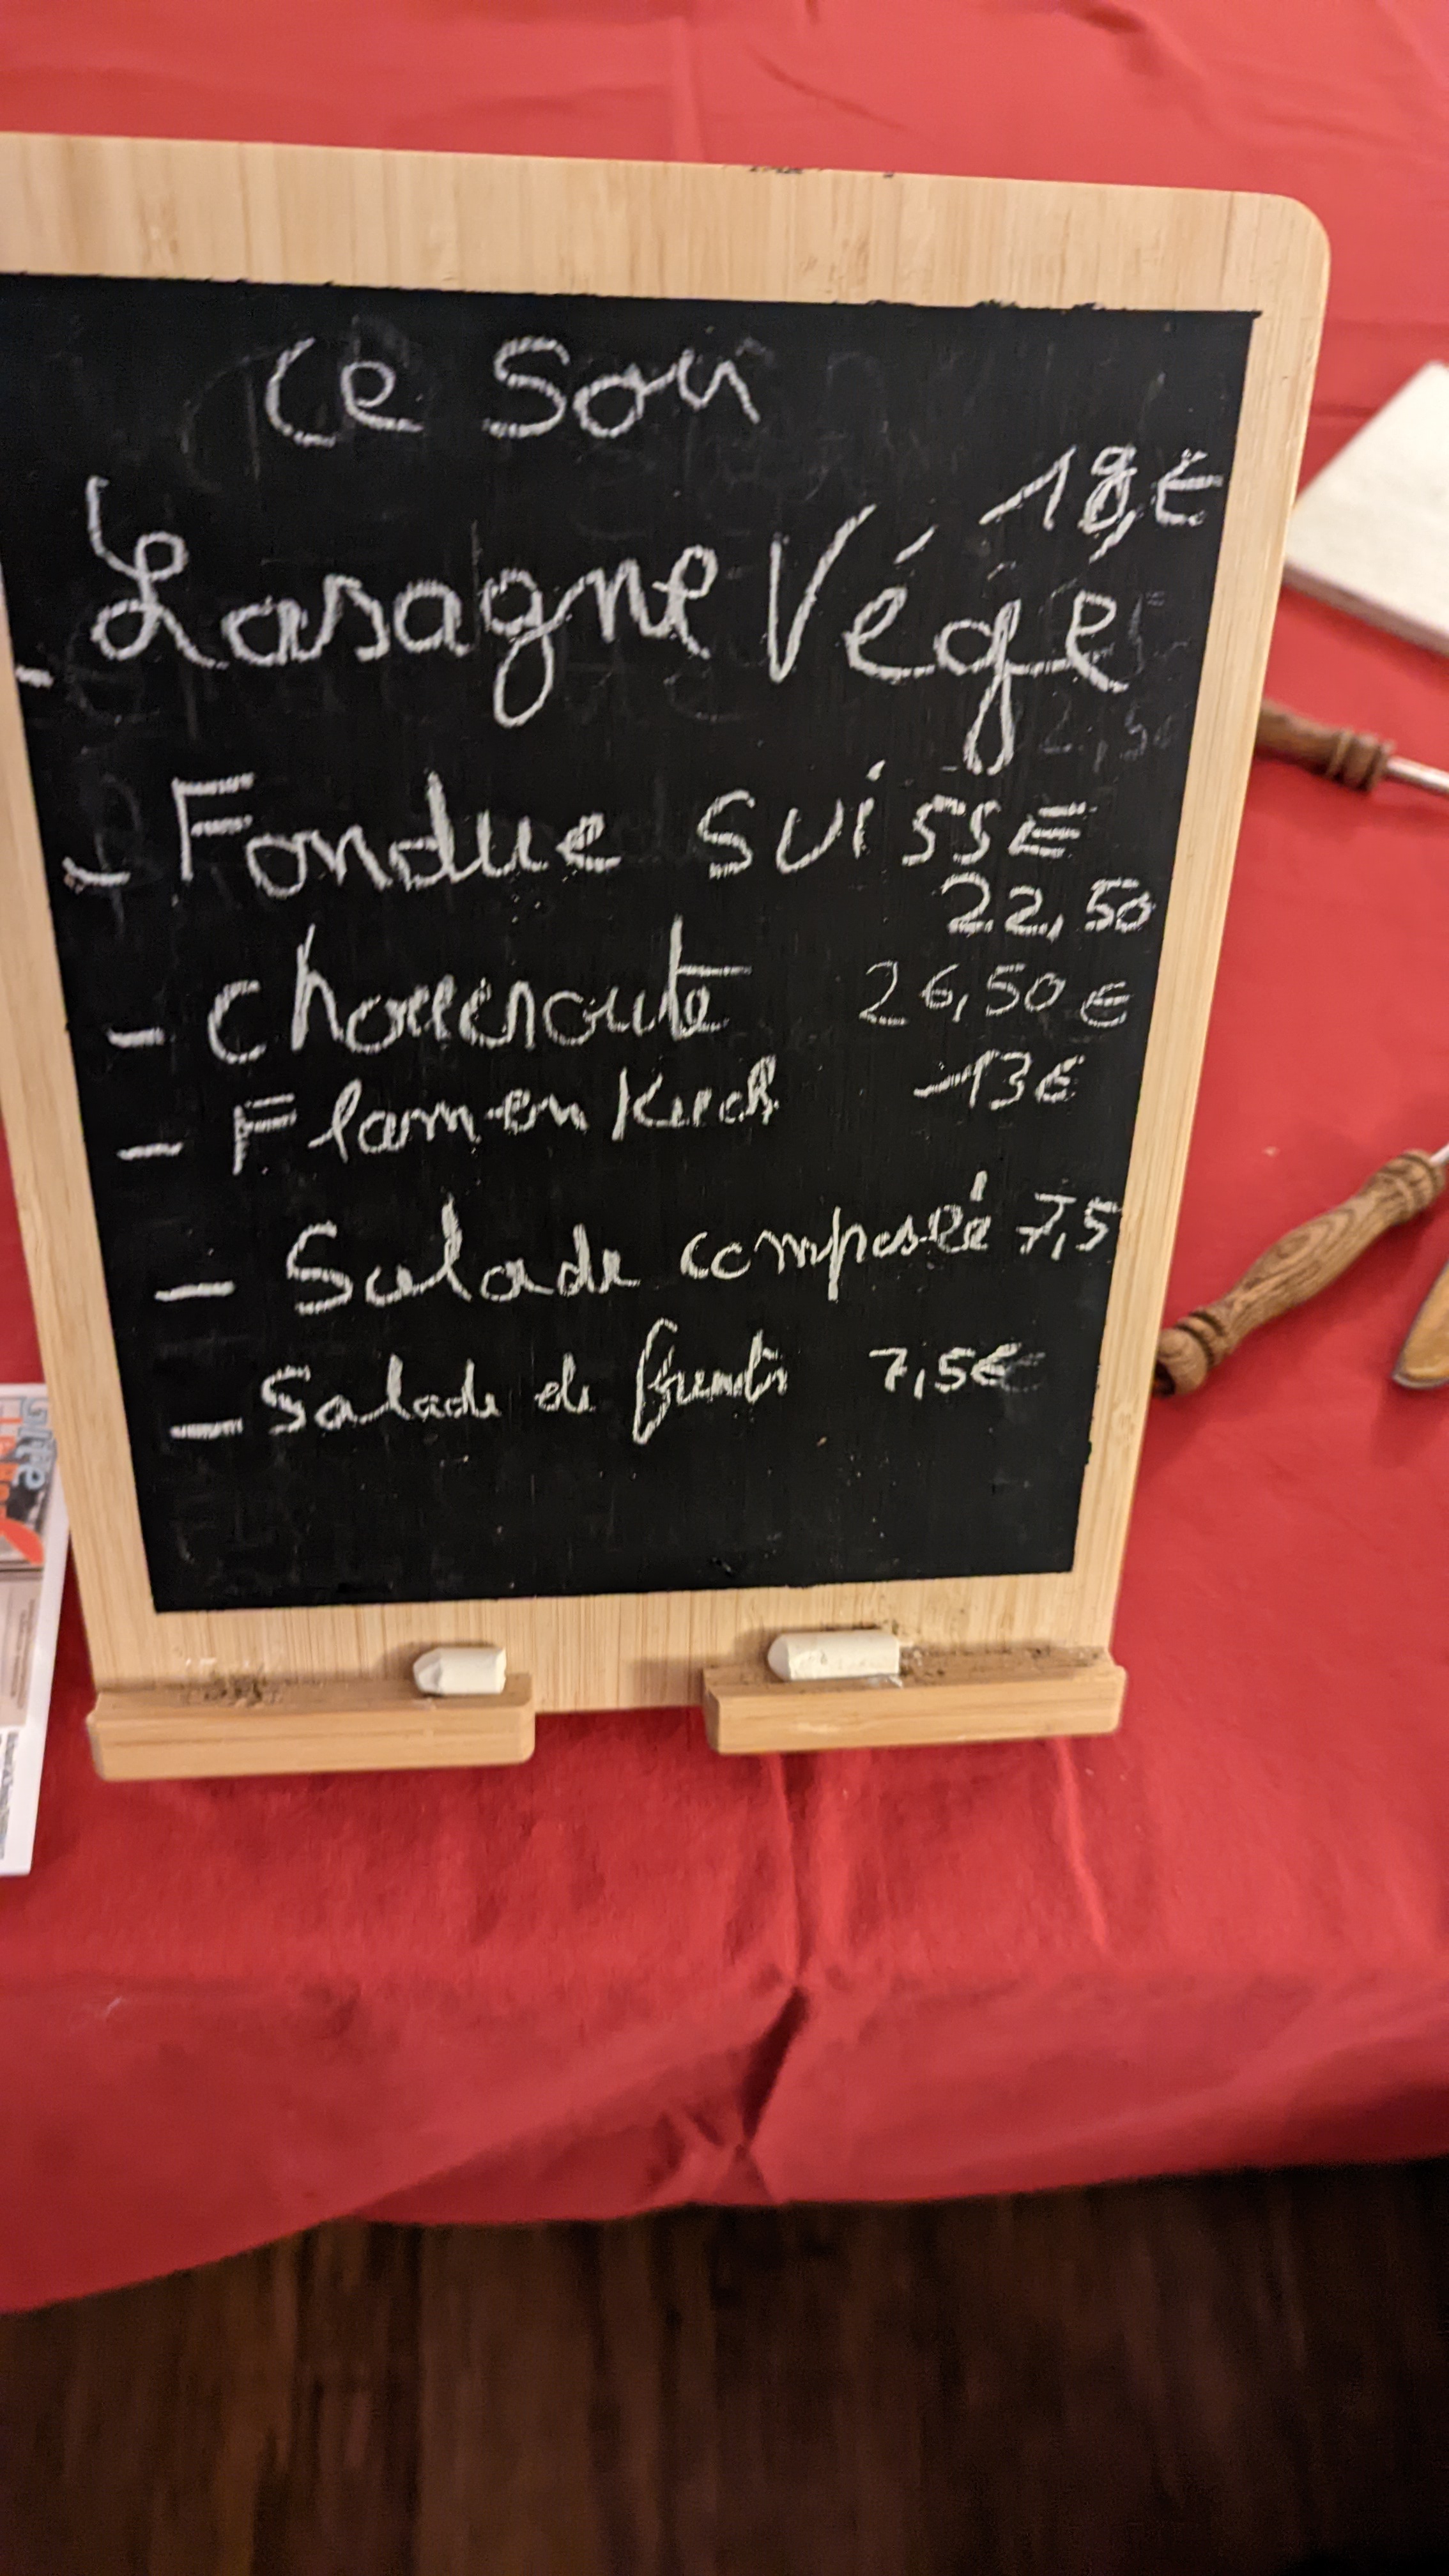 Ce Soir
18,€
- Lasagne Végé
- Fondue SUiSSE
22,50
- Choucroute 26,50 €
- Flamenkuch 13€
- Salade composée 7,5
- Salade de fruits 7,5€